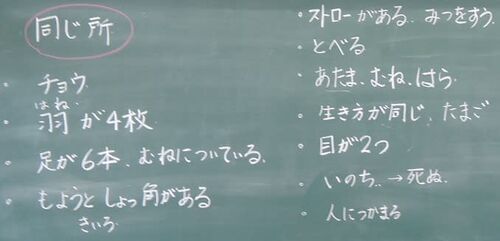 同じ所
・チョウ
はね
・羽が4枚
・足が6本、むねについている。
・もようとしょっ角がある
きいろ
・ストローがある、みつをすう
・とべる
・あたま、むね、はら
・生き方が同じ、たまご
・目が2つ
・いのち、→死ぬ、
・人につかまる